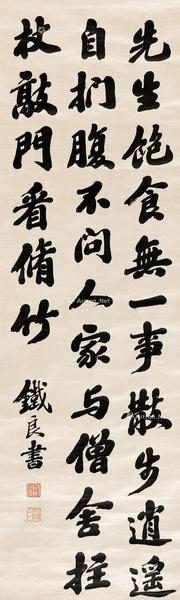 先生飽食無一事散步逍遥
自捫腹不問人家与僧舍拄
杖敲門看脩竹
鐵良書